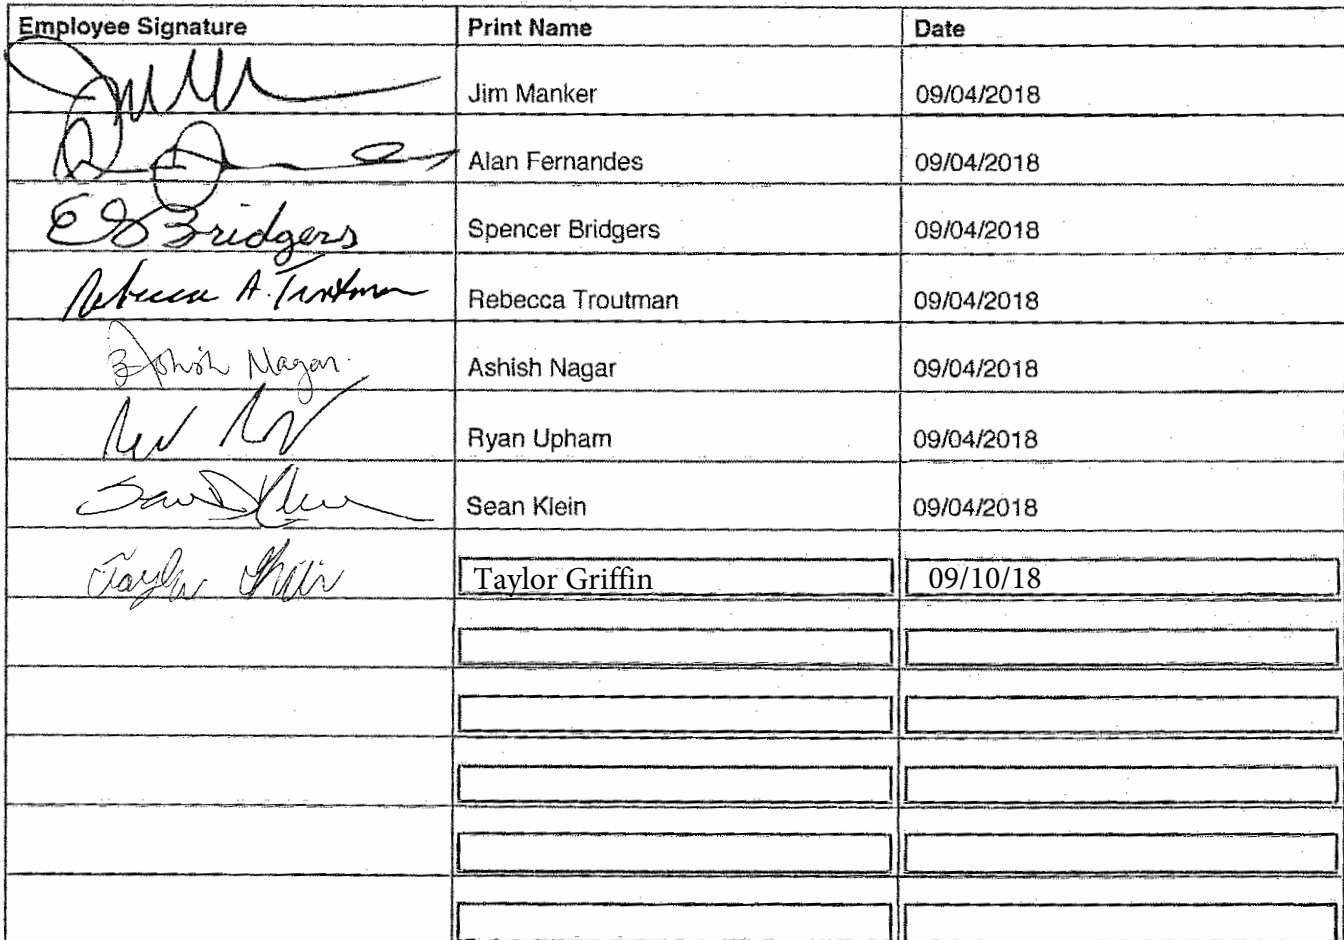 Employee Signature Print Name Date
Jim Manker 09/04/2018
Alan Fernandes 09/04/2018
E S Bridgers Spencer Bridgers 09/04/2018
Rebecca A. Troutman Rebecca Troutman 09/04/2018
Ashish Nagar. Ashish Nagar 09/04/2018
Ryan Upham 09/04/2018
Sean Klein 09/04/2018
Taylor Griffin Taylor Griffin 09/10/18